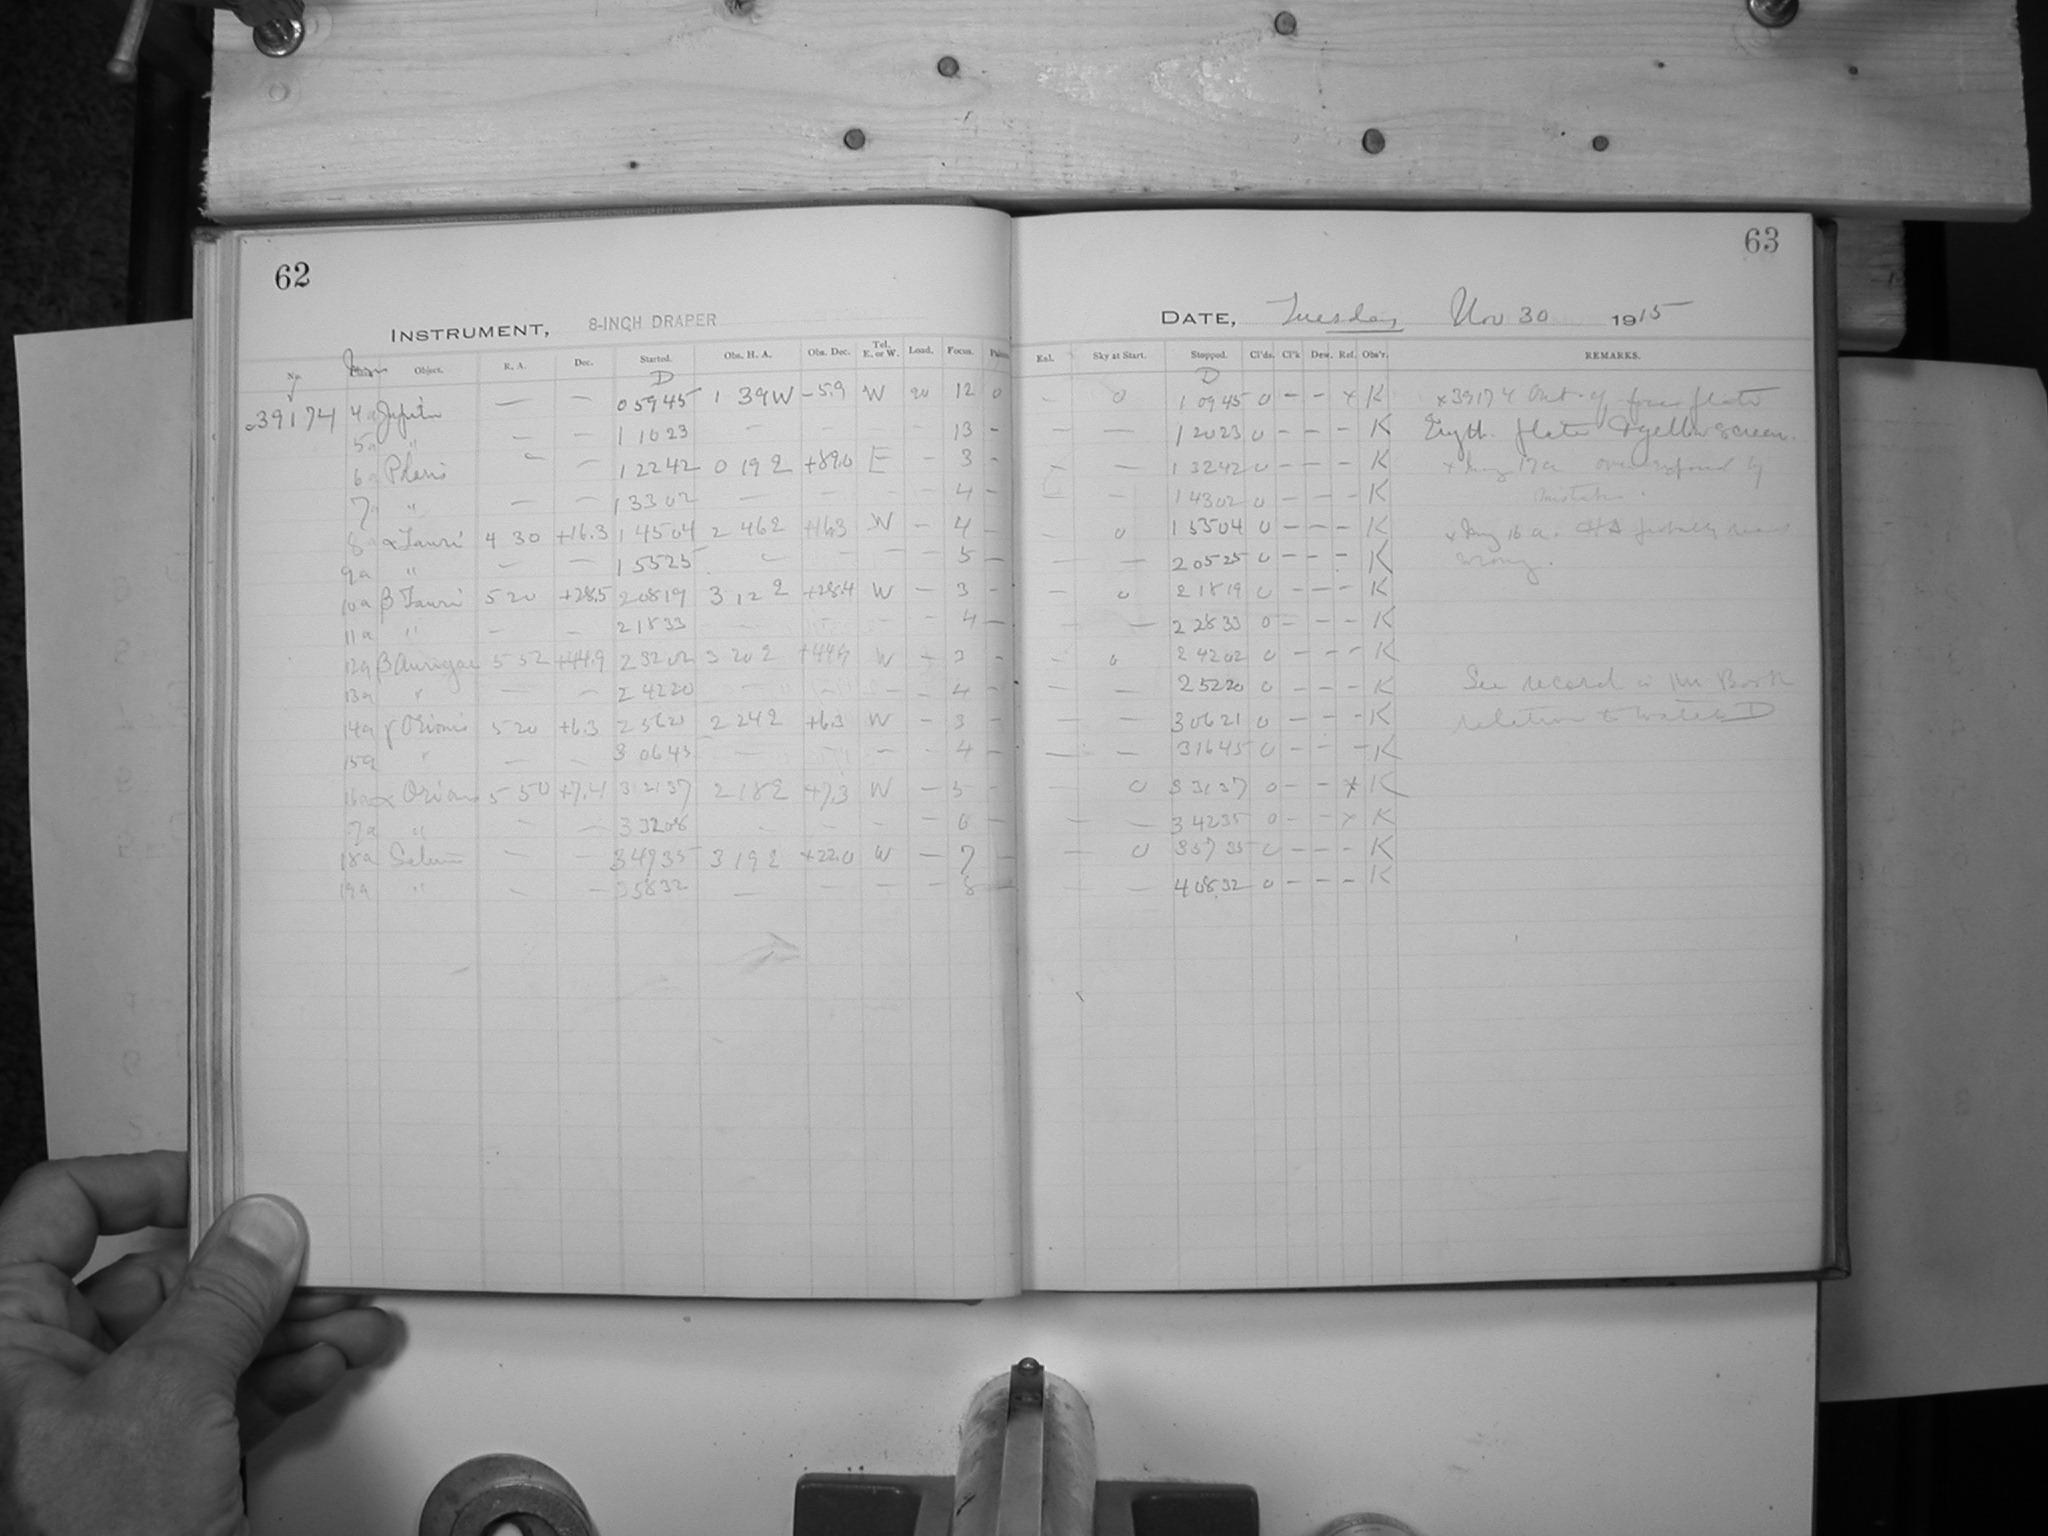 62
INSTRUMENT, 8-INCH DRAPER
No. Object. R. A. Dec. Started. Obs. H. A. Obs. Dec. Tel. E. or W. Load. Focus.
D
39174 4a Jupiter — — 05945 1 39W -5.9 W 20 12 0
5a " — — 11023 — — — — 13 -
6a Polaris — — 12242 0 19 2 +89.0 E - 3 -
7a " — — 13302 — — - - 4 -
8a α Tauri 4 30 +16.3 14504 2 46 2 +16.3 W - 4 -
9a " — — 15525 — - - - 5 —
10a β Tauri 5 20 +28.5 20819 3 12 2 +28.4 W — 3 -
11a " — — 21833 - 4 —
12a β Aurigae 5 52 +44.9 23202 3 20 2 +44.9 W - 3 -
13a " — — 24220 - - 4 -
14a γ Orionis 5 20 +6.3 25621 2 24 2 +6.3 W - 3 -
15a " — — 30643 — - - 4 —
16a α Orionis 5 50 +7.4 32137 2 18 2 +7.3 W - 5 -
17a " — — 33208 - - - - 6 —
18a Saturn — — 34735 3 19 2 +22.0 W — 7 —
19a " — — 35832 — — - - 8 —
63
DATE, Tuesday Nov 30 1915
Exl. Sky at Start. Stopped. Cl'ds. Cl'k Dew. Ref. Obs'r. REMARKS.
D
— 0 10945 0 - - x K x39174 Out of focus plate
— — 12023 0 - - - K Eryth. plate & yellow screen.
— — 13242 0 - - - K x 17a over exposed by
— 14302 0 - - - K mistake.
- 0 15504 0 - - - K x 16a. HA probably read
— — 20525 0 - - - K wrong.
— 0 21819 0 - - - K
— — 22833 0 - - - K
- 0 24202 0 - - - K
— — 25220 0 - - - K See record in Book
— — 30621 0 - - - K relation to D
— — 31645 0 - - - K
0 33137 0 - - x K
— — 34235 0 - - x K
— 0 35735 0 - - - K
— — 40832 0 - - - K